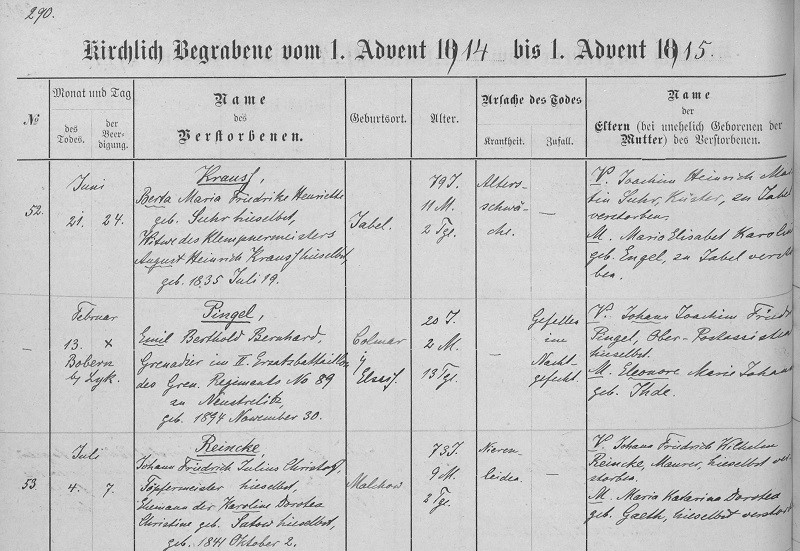 290.
Kirchlich Begrabene vom 1. Advent 1914 bis 1. Advent 1915.
№
Monat und Tag
des Todes.
der Beerdigung.
Name
des
Verstorbenen.
Geburtsort.
Alter.
Ursache des Todes
Krankheit.
Zufall.
Name
der
Eltern (bei unehelich Geborenen der
Mutter) des Verstorbenen.
52.
Juni
21. 24.
Krauss,
Berta Maria Friedrike Henriette
geb. Suhr hieselbst,
Witwe des Klempnermeisters
August Heinrich Krauss hieselbst,
geb. 1835 Juli 19.
Jabel.
79 J.
11 M.
2 Tge.
Alters-
schwä-
che.
—
V. Joachim Heinrich Mar
tin Suhr, Küster, zu Jabel
verstorben.
M. Maria Elisabet Karolin
geb. Engel, zu Jabel verstor
ben.
–
Februar
13. x
Bobern
b/ Lyk.
Pingel,
Emil Berthold Bernhard,
Grenadier im II. Ersatzbataillon
des Gren. Regiments No 89
zu Neustrelitz,
geb. 1894 November 30.
Colmar
i/
Elsass.
20 J.
2 M.
13 Tge.
—
Gefallen
im
Nacht-
gefecht.
V. Johann Joachim Friedr
Pingel, Ober-Postassistent
hieselbst.
M. Eleonore Marie Johann
geb. Ihde.
53.
Juli
4. 7.
Reincke,
Johann Friedrich Julius Christoff,
Töpfermeister hieselbst,
Ehemann der Karoline Dorotea
Christine geb. Satow hieselbst,
geb. 1841 Oktober 2.
Malchow
73 J.
9 M.
2 Tge.
Nieren-
leiden.
—
V. Johann Friedrich Wilhelm
Reincke, Maurer, hieselbst ver
storben.
M. Maria Katarina Dorotea
geb. Gaeth, hieselbst verstorb